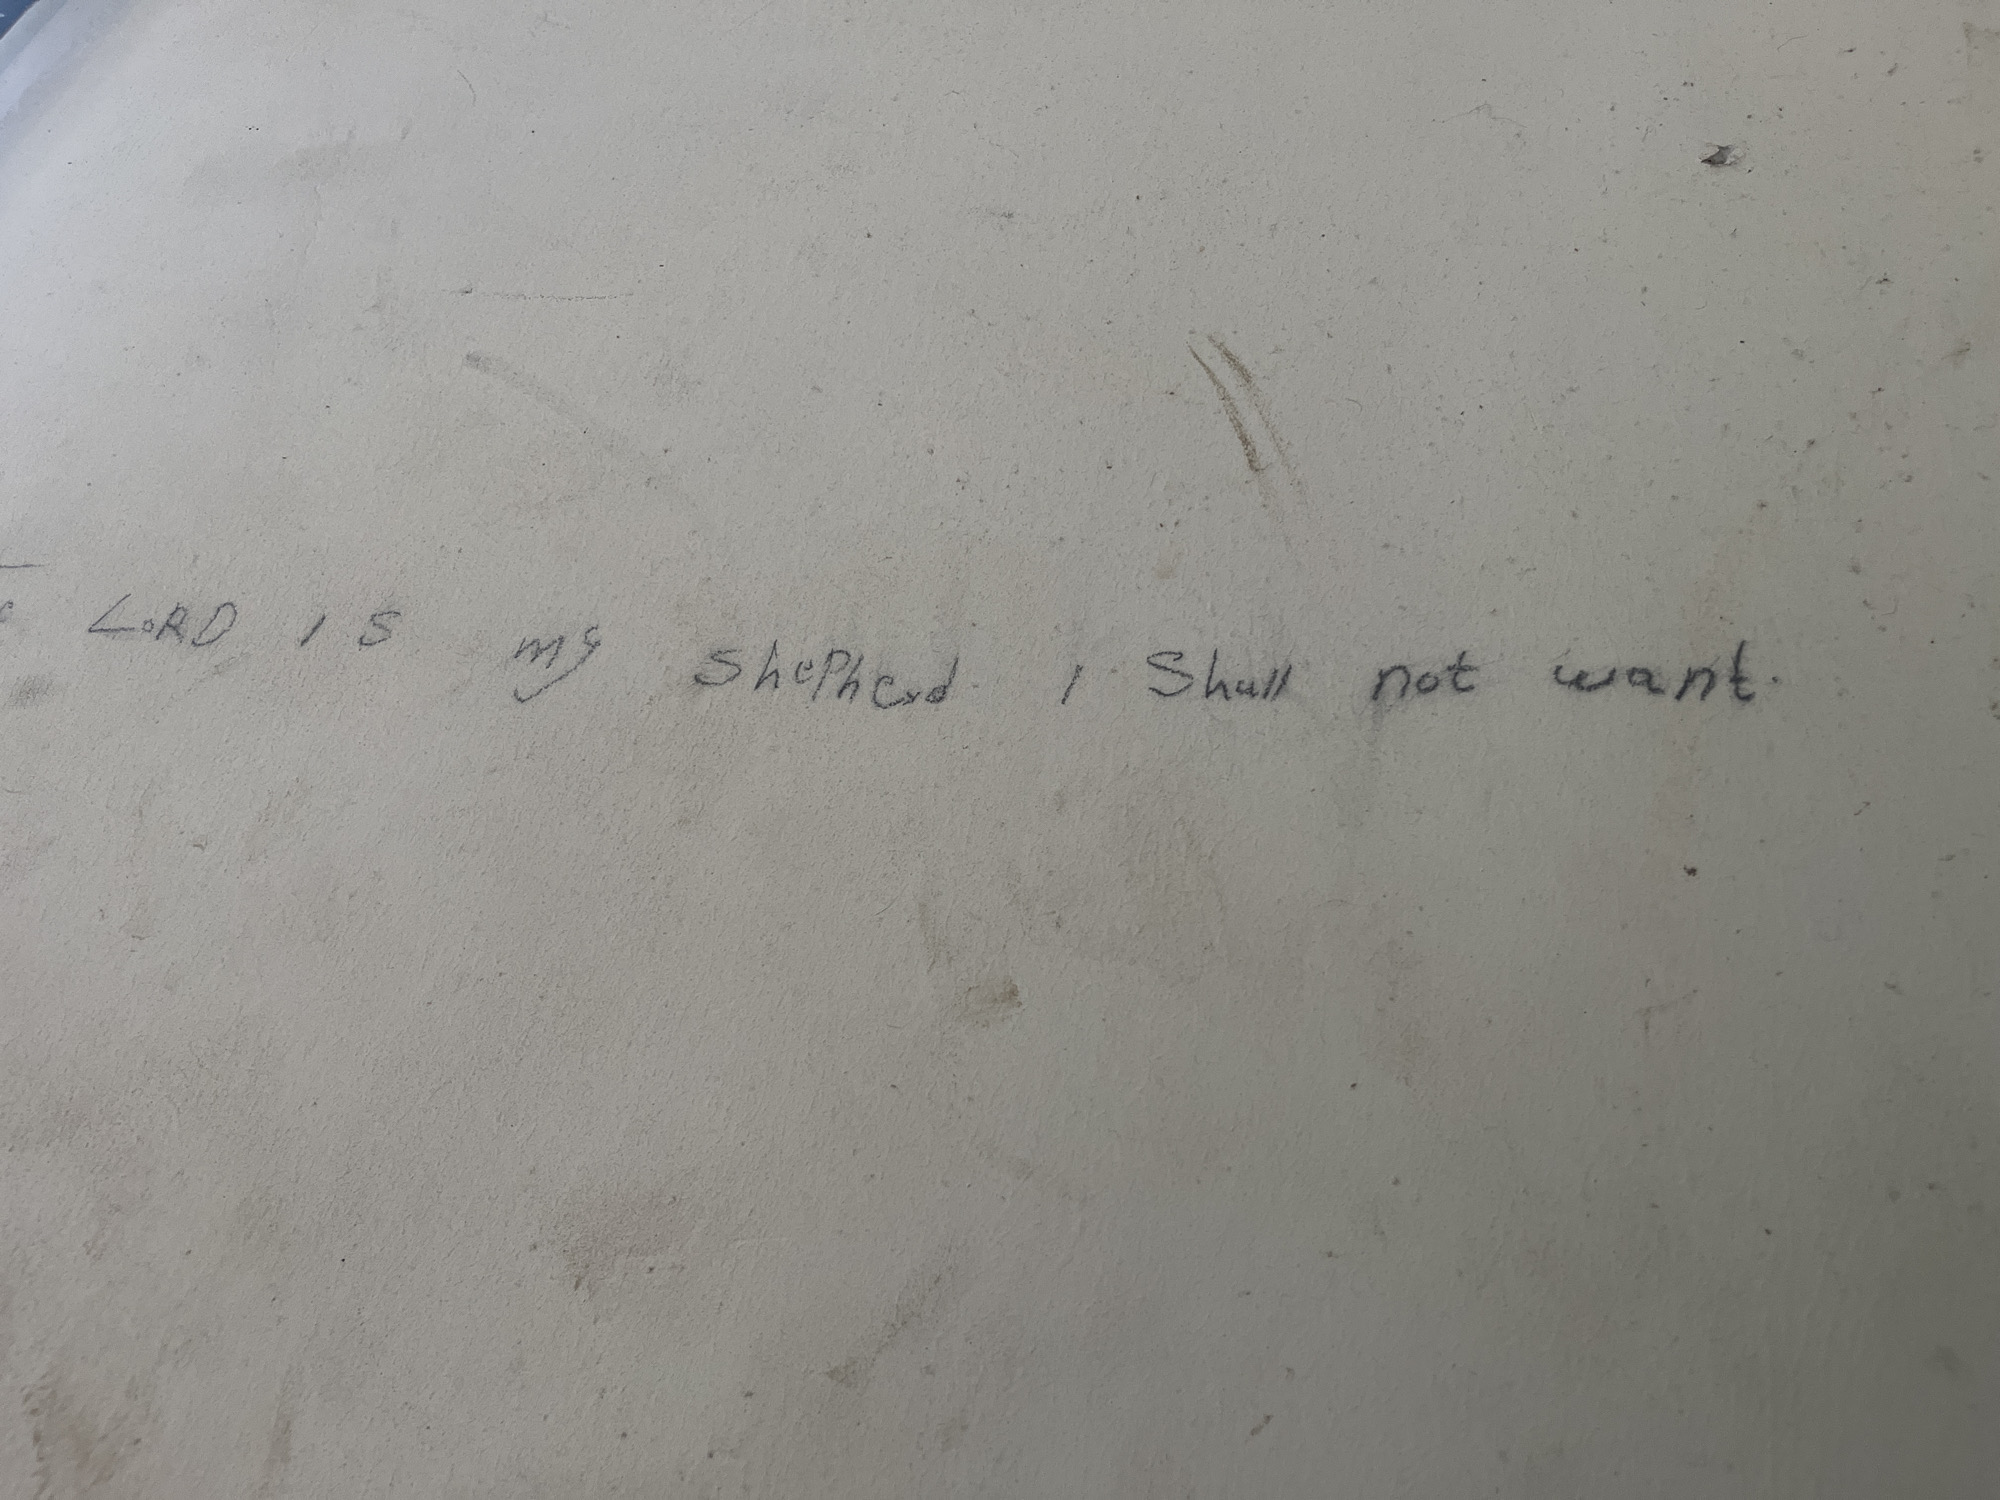 LORD is my shepherd I Shall not want.